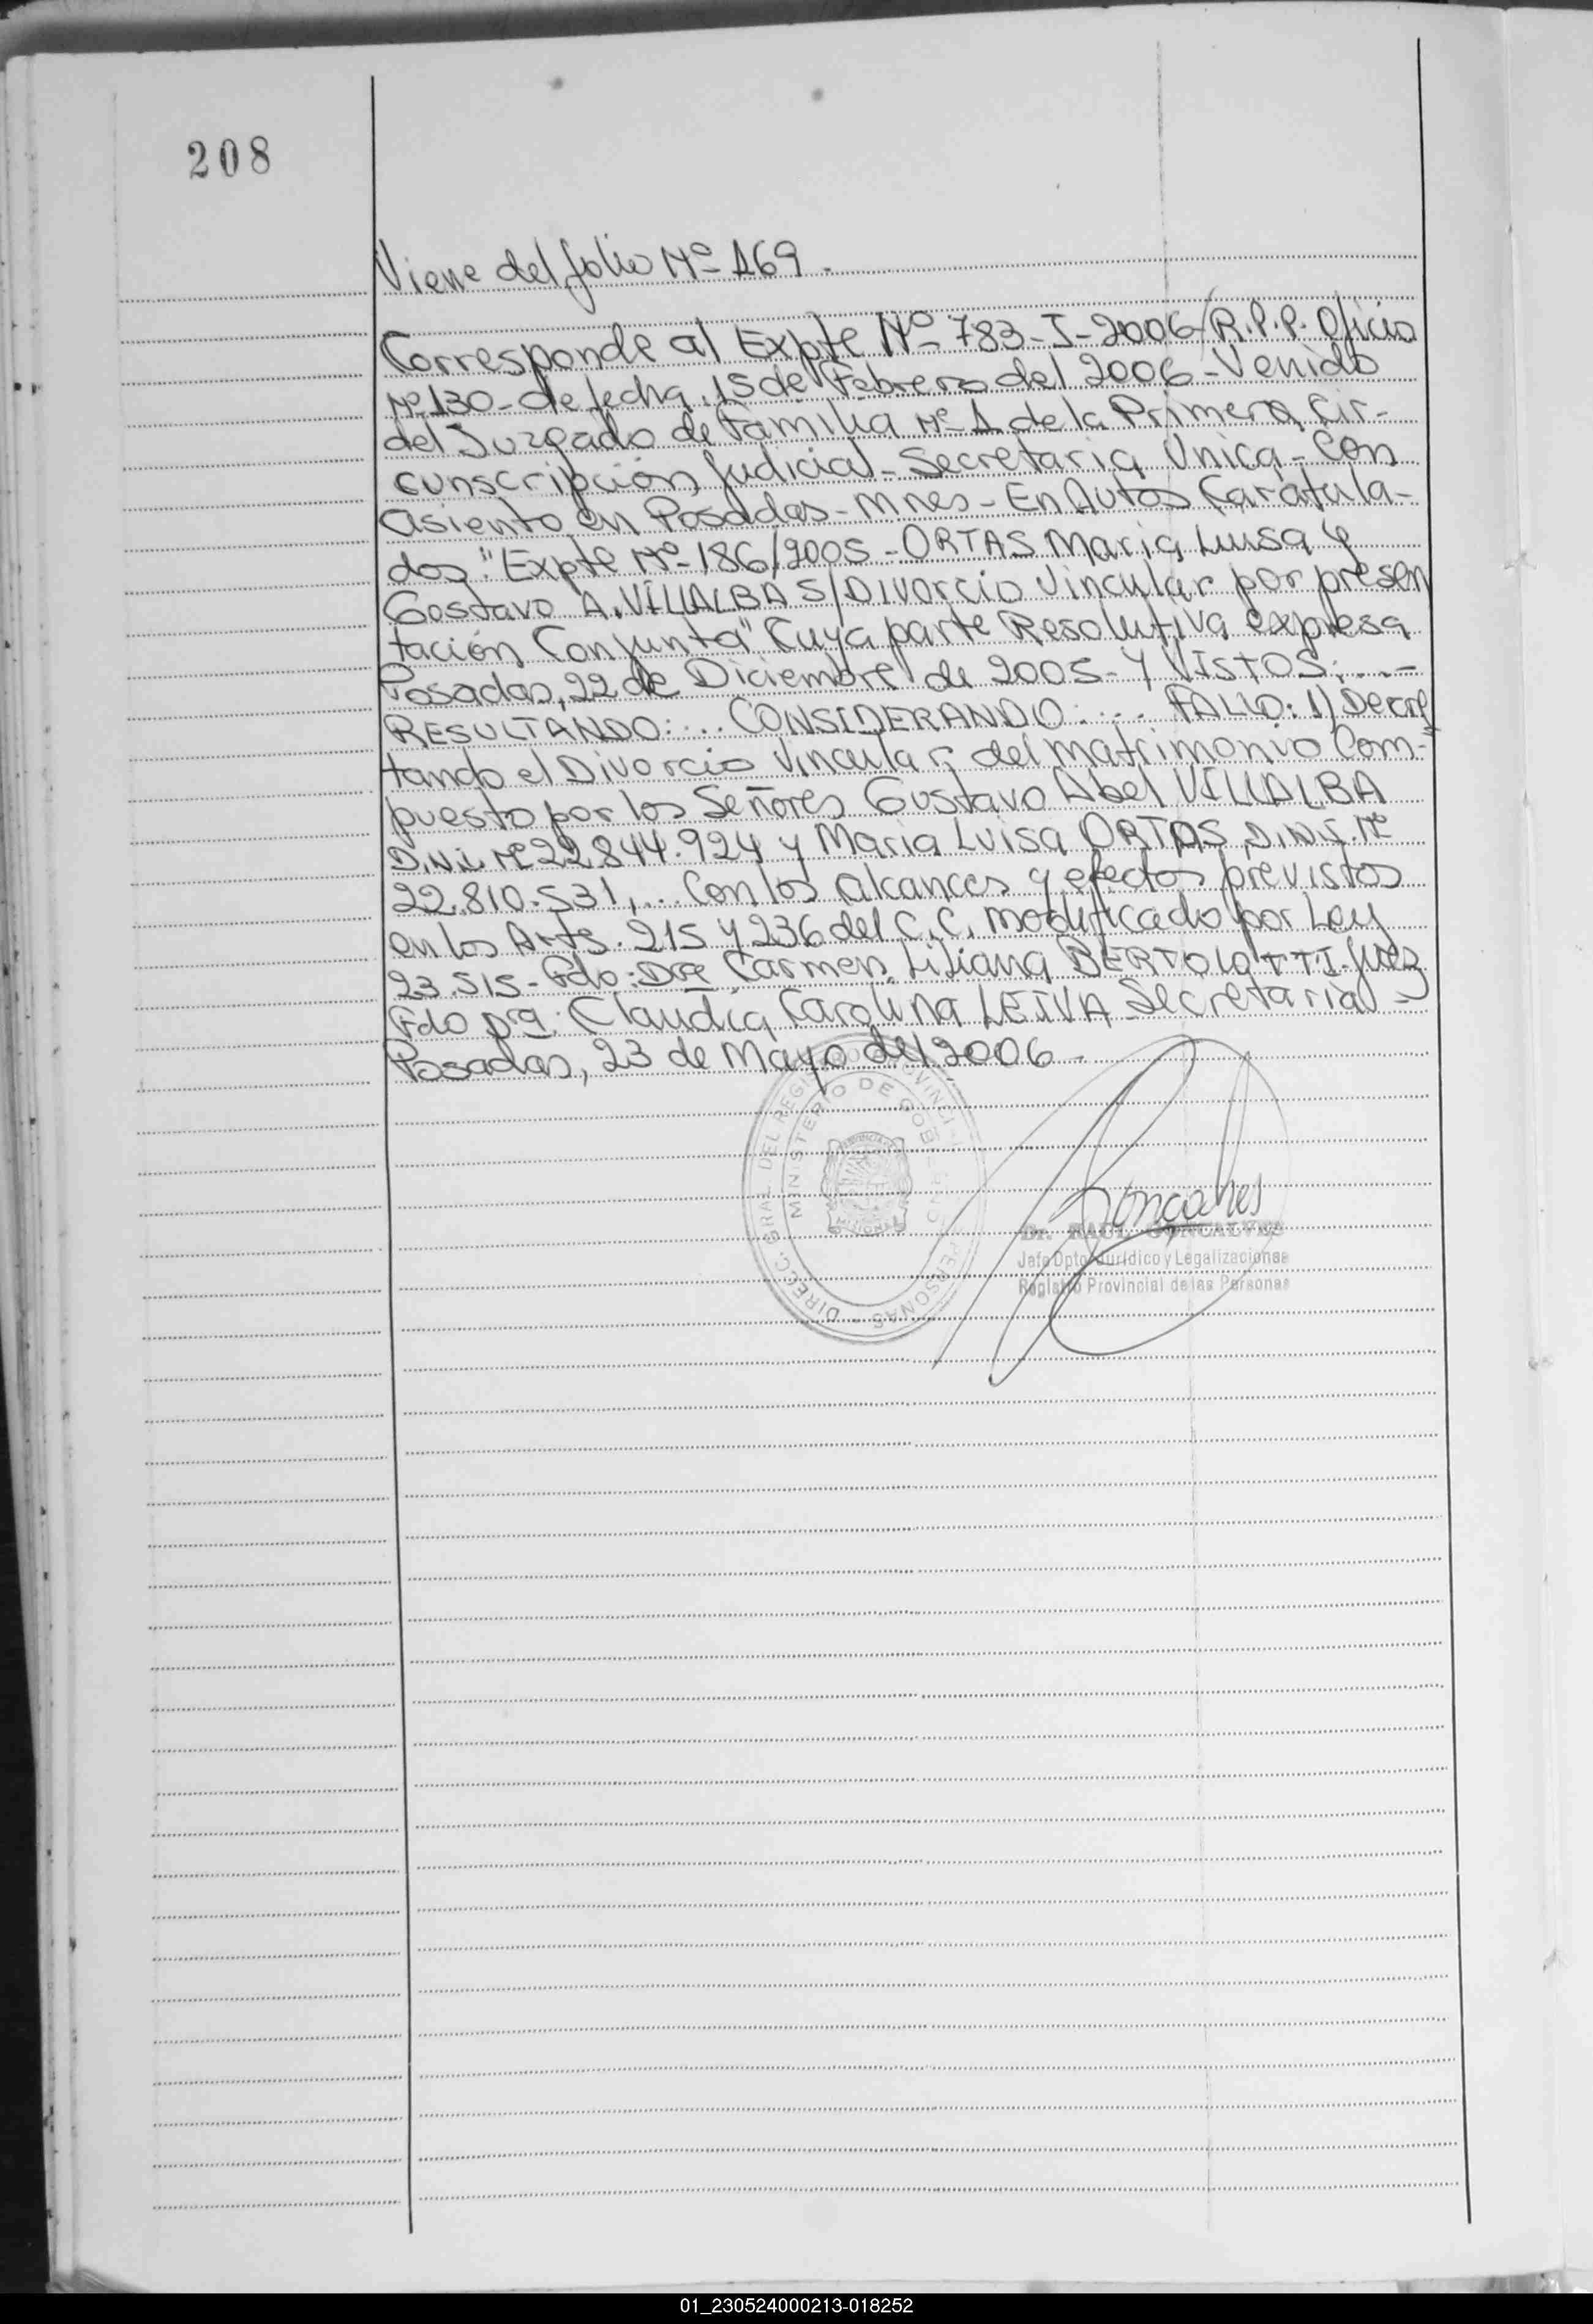 208
Viene del folio Nº 169.
Corresponde al Expte Nº 783-J-2006/R.P.P. Oficio
Nº 130-de fecha, 15 de Febrero del 2006-Venido
del Juzgado de Familia Nº 1 de la Primera Cir-
cunscripción Judicial-Secretaria Unica-Con
asiento en Posadas-Mnes-En Autos Caratula-
dos "Expte Nº 186/2005-ORTAS Maria Luisa y
Gostavo A. VILLALBA S/DIVORCIO Vincular por presen
tación Conjunta" Cuya parte Resolutiva expresa
Posadas, 22 de Diciembre de 2005-Y VISTOS:...-
RESULTANDO:... CONSIDERANDO:... FALLO: 1) Decre
tando el Divorcio Vincular, del matrimonio Com-
puesto por los Señores Gustavo Abel VILLALBA
D.N.I. Nº 22.844.924 y Maria Luisa ORTAS D.N.I. Nº
22.810.531,... Con los alcances y efectos previstos
en los Arts. 215 y 236 del C.C. modificado por Ley
23.515-Fdo: Dra Carmen Liliana BERTOLOTTI-Juez
Fdo Dra: Claudia Carolina LEIVA Secretaria-
Posadas, 23 de Mayo del 2006-
DIRECC. GRAL. DEL REGISTRO PROVINCIAL PERSONAS
MINISTERIO DE GOBIERNO
Goncalves
Dr. RAUL GONCALVES
Jefe Dpto. Jurídico y Legalizaciones
Registro Provincial de las Personas
01_230524000213-018252